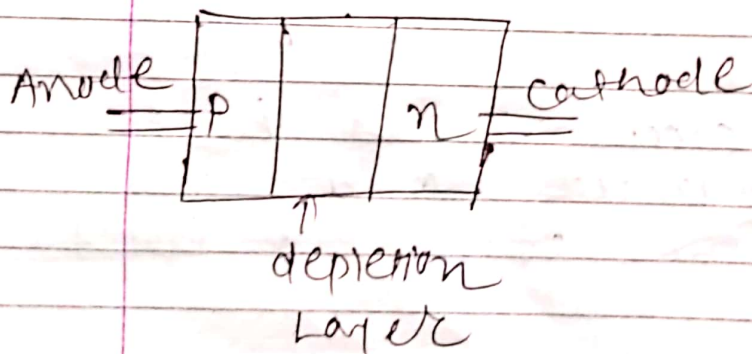 Anode
P
n
Cathode
depletion
Layer